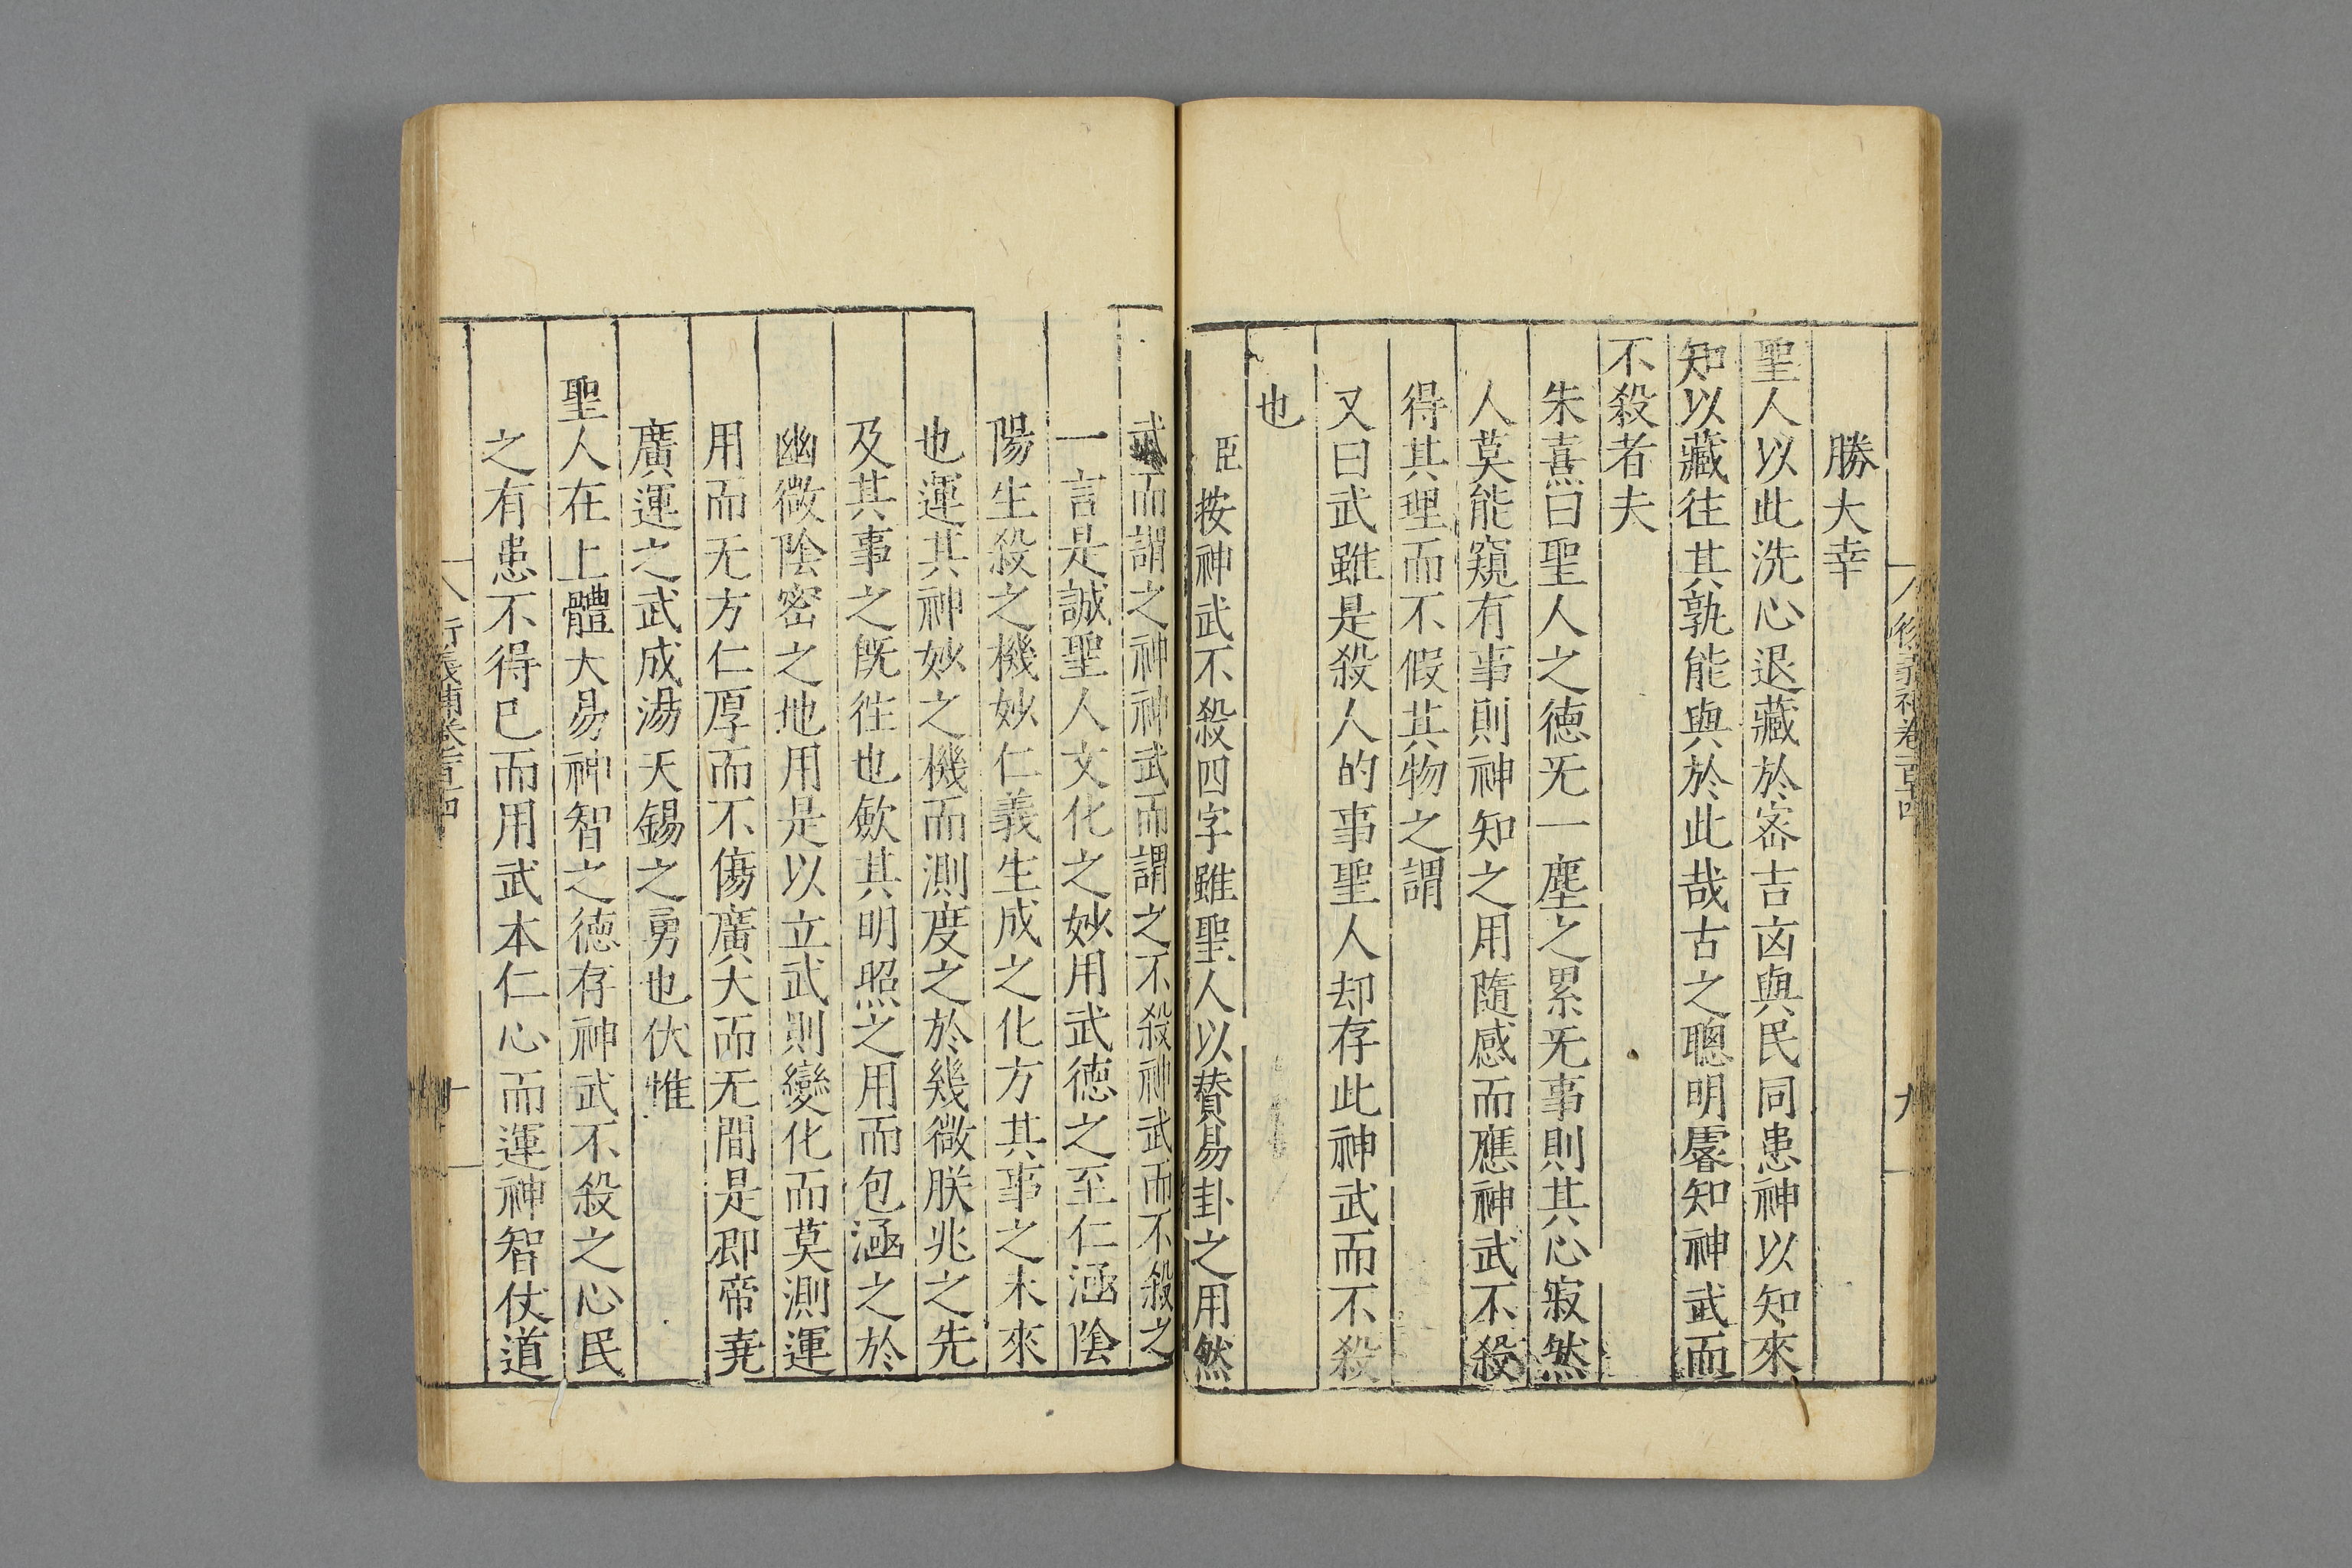 勝大幸
聖人以此洗心退藏於密吉凶與民同患神以知來
知以藏往其孰能與於此哉古之聰明睿知神武而
不殺者夫
朱熹曰聖人之德无一塵之累无事則其心寂然
人莫能窺有事則神知之用隨感而應神武不殺
得其理而不假其物之謂
又曰武雖是殺人的事聖人却存此神武而不殺
也
臣按神武不殺四字雖聖人以賛易卦之用然
武而謂之神神武而謂之不殺神武而不殺之
一言是誠聖人文化之妙用武德之至仁涵陰
陽生殺之機妙仁義生成之化方其事之未來
也運其神妙之機而測度之於幾微朕兆之先
及其事之既徃也歛其明照之用而包涵之於
幽微陰密之地用是以立武則變化而莫測運
用而无方仁厚而不傷廣大而无間是卽帝堯
廣運之武成湯天錫之勇也伏惟
聖人在上體大易神智之德存神武不殺之心民
之有患不得已而用武本仁心而運神智仗道
衍義補卷
九
十